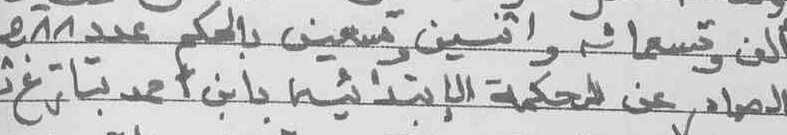 ألف وتسعمائه واثنين وتسعين بالحكم عدد
الصادر عن المحكمة الإبتدائية بابن أحمد بتاريخ